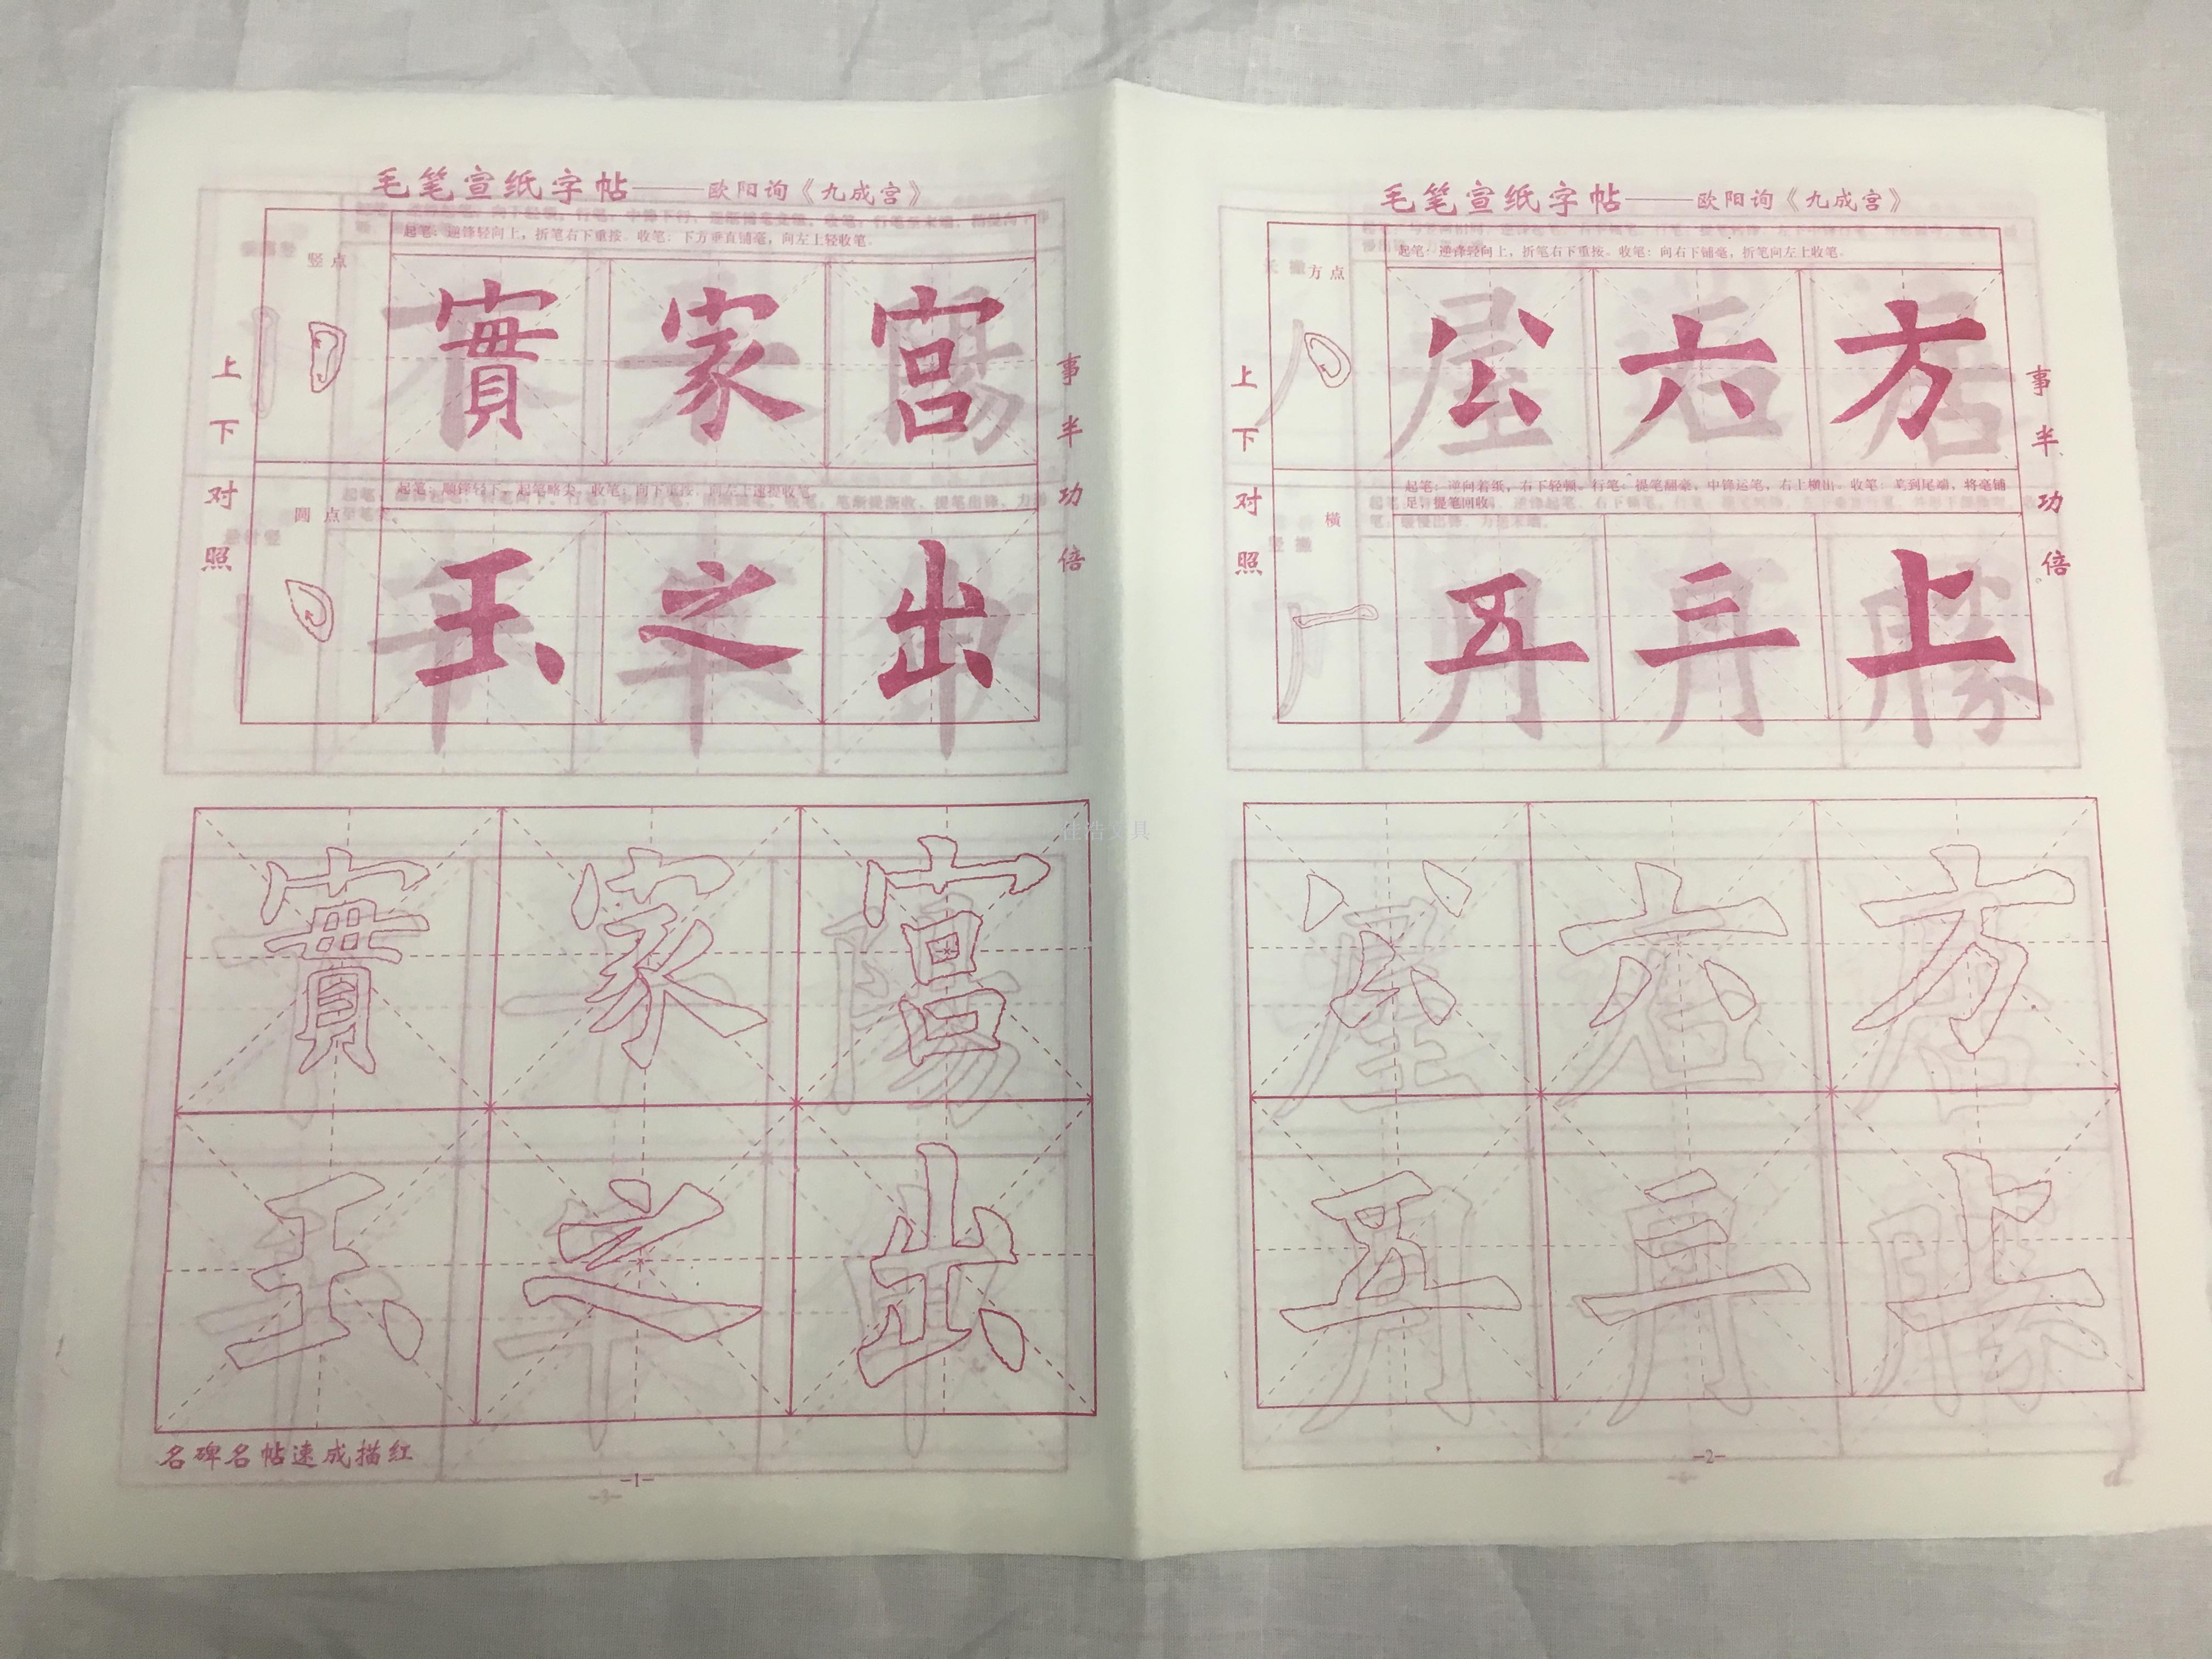 毛笔宣纸字帖——欧阳询《九成宫》
竖点
起笔：逆锋轻向上，折笔右下重按。收笔：下方垂直铺毫，向左上轻收笔。
實家宫
圆点
起笔：顺锋轻下，起笔略尖。收笔：向下重按，向左上速提收笔。
玉之出
上下对照
事半功倍
實家宫
玉之出
名碑名帖速成描红
-1-
毛笔宣纸字帖——欧阳询《九成宫》
方点
起笔：逆锋轻向上，折笔右下重按。收笔：向右下铺毫，折笔向左上收笔。
公六方
横
起笔：逆向着纸，右下轻顿。行笔：提笔翻毫，中锋运笔，右上横出。收笔：笔到尾端，将毫铺
足，提笔回收。
五三上
上下对照
事半功倍
公六方
五三上
-2-